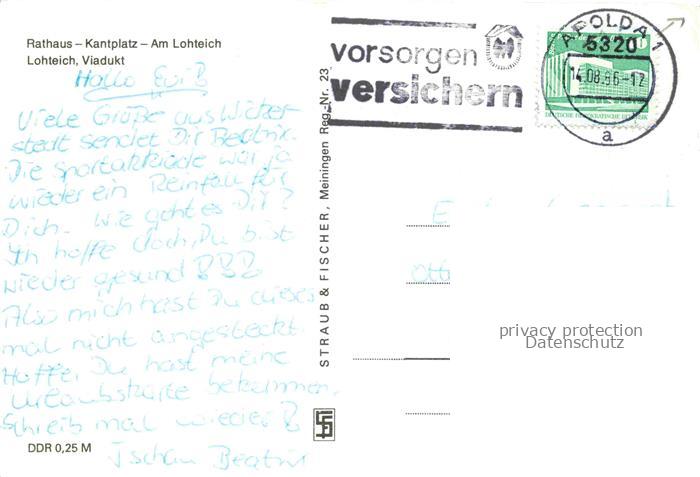 Rathaus – Kantplatz – Am Lohteich
Lohteich, Viadukt
Hallo
Viele Grüße aus Wicker-
stedt sendet Dir Beatrix.
Die Spartakiade war ja
wieder ein Reinfall für
Dich. Wie geht es Dir?
Ich hoffe doch, Du bist
wieder gesund
Also mich hast Du dieses
mal nicht angesteckt.
Hoffe, Du hast meine
Urlaubskarte bekommen.
Schreib mal wieder!
Tschau Beatrix
DDR 0,25 M
STRAUB & FISCHER, Meiningen Reg.-Nr. 23
vorsorgen
versichern
APOLDA 1
5320
14.08.86-12
a
DEUTSCHE DEMOKRATISCHE REPUBLIK
Ott
privacy protection
Datenschutz